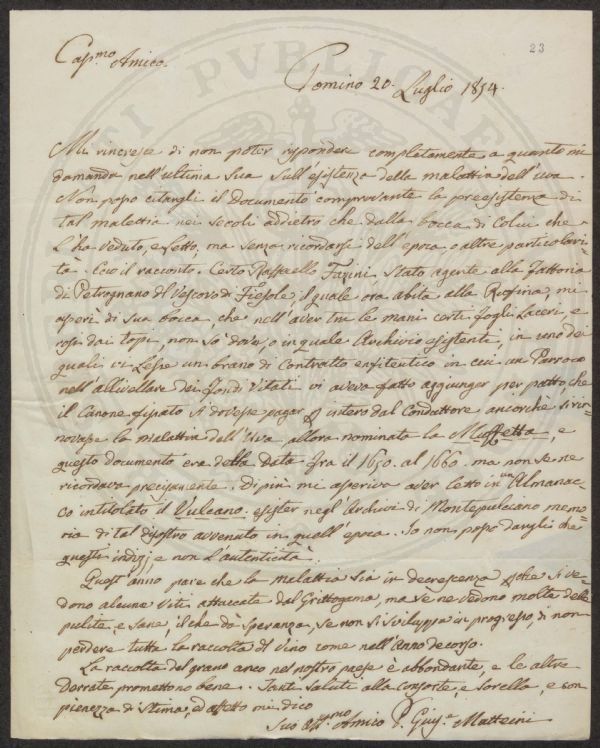 23
Caris.mo Amico.
Pomino 20. Luglio 1854.
Mi rincresce di non poter rispondere completamente a quanto mi
domanda nell'ultima Sua sull'esistenza della malattia dell'uva.
Non posso citargli il documento comprovante la preesistenza di
tal malattia nei secoli addietro che dalla bocca di Colui che
l'ha veduto, e letto, ma senza ricordarsi dell'epoca o altre particolari-
tà. Ecco il racconto. Certo Raffaello Fasini Stato agente alla Fattoria
di Petrognano del Vescovo di Fiesole, il quale ora abita alla Rufina, mi
asserì di sua bocca, che nell'aver tra le mani certi fogli laceri, e
rosi dai topi, non so dove, o in quale Archivio esistenti, in uno de
quali vi lesse un brano di Contratto enfiteutico in cui un Parroco
nell'allivellare dei fondi Vitati vi aveva fatto aggiunger per patto, che
il Canone fissato si dovesse pagar intero dal Conduttore ancorchè si rin-
novasse la malattia dell'Uva allora nominata la Muffetta, e
questo documento era della Data fra il 1650. al 1660. ma non se ne
ricordava precisamente. Di più mi asseriva aver letto in un Almanac-
co intitolato il Vulcano. esister negl'Archivi di Montepulciano memo-
ria di tal disastro avvenuto in quall'epoca. Io non posso darglie che
questi indizj, e non l'autenticità.
Quest'anno pare che la malattia sia in decrescenza che si ve-
dono alcune Viti attaccate dal Crittogama, ma se ne vedono molte delle
pulite, e sane, il che dà speranza, se non si sviluppa in progresso, di non
perdere tutta la raccolta del Vino come nell'Anno decorso.
La raccolta del grano anco nel nostro paese è abbondante, e le altre
Derrate promettono bene. Tanti saluti alla consorte, e Sorella, e con
pienezza di stima, ed affetto mi dico
Suo Aff.mo Amico P. Giuse.e Matteini